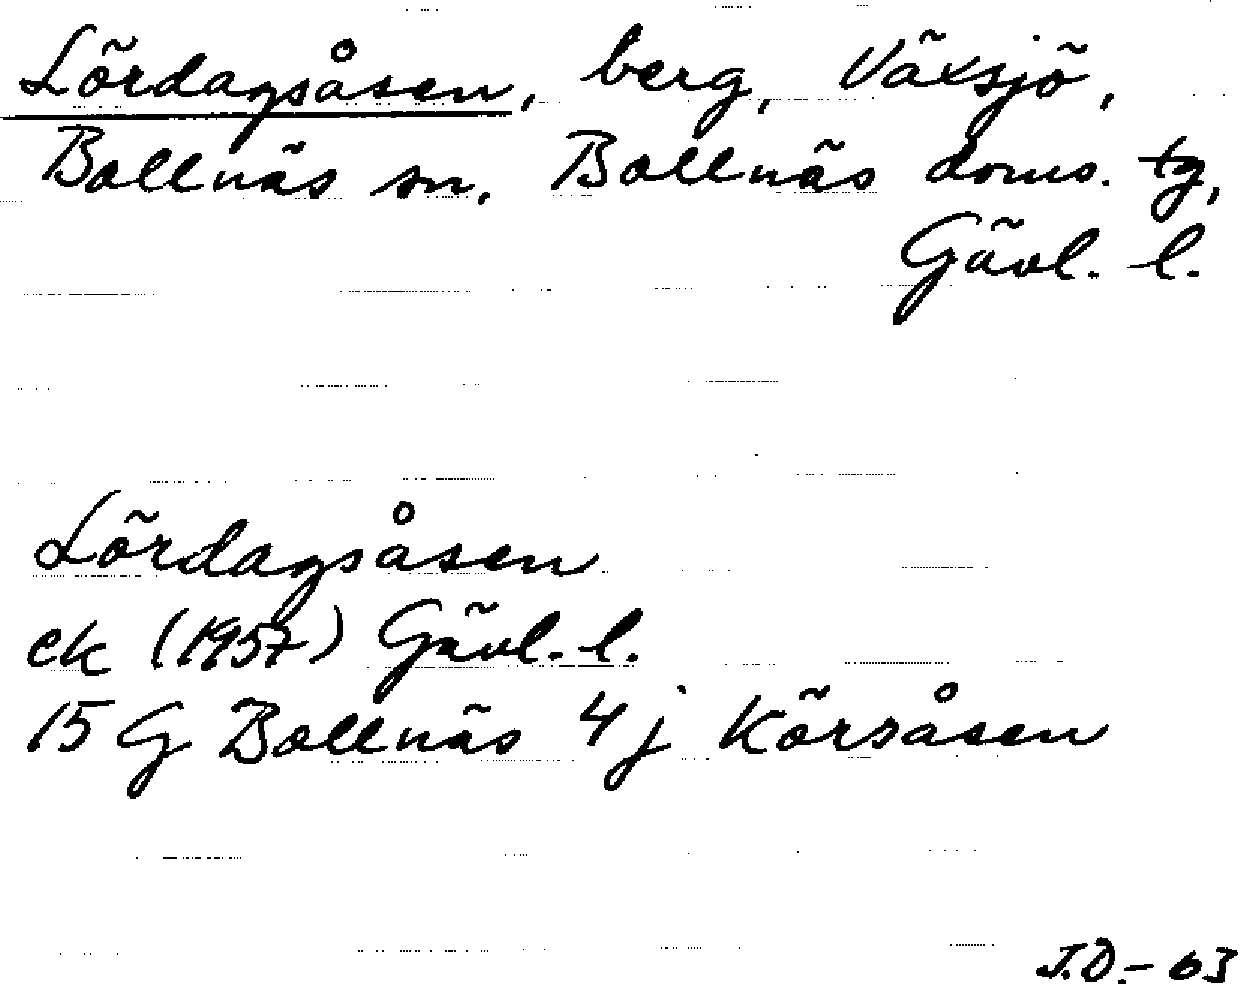 Lördagsåsen, berg, Växsjö,
Bollnäs sn, Bollnäs doms. tg,
Gävl. l.
Lördagsåsen
ek (1957) Gävl. l.
15 G Bollnäs 4 j Körsåsen
J.D. - 63